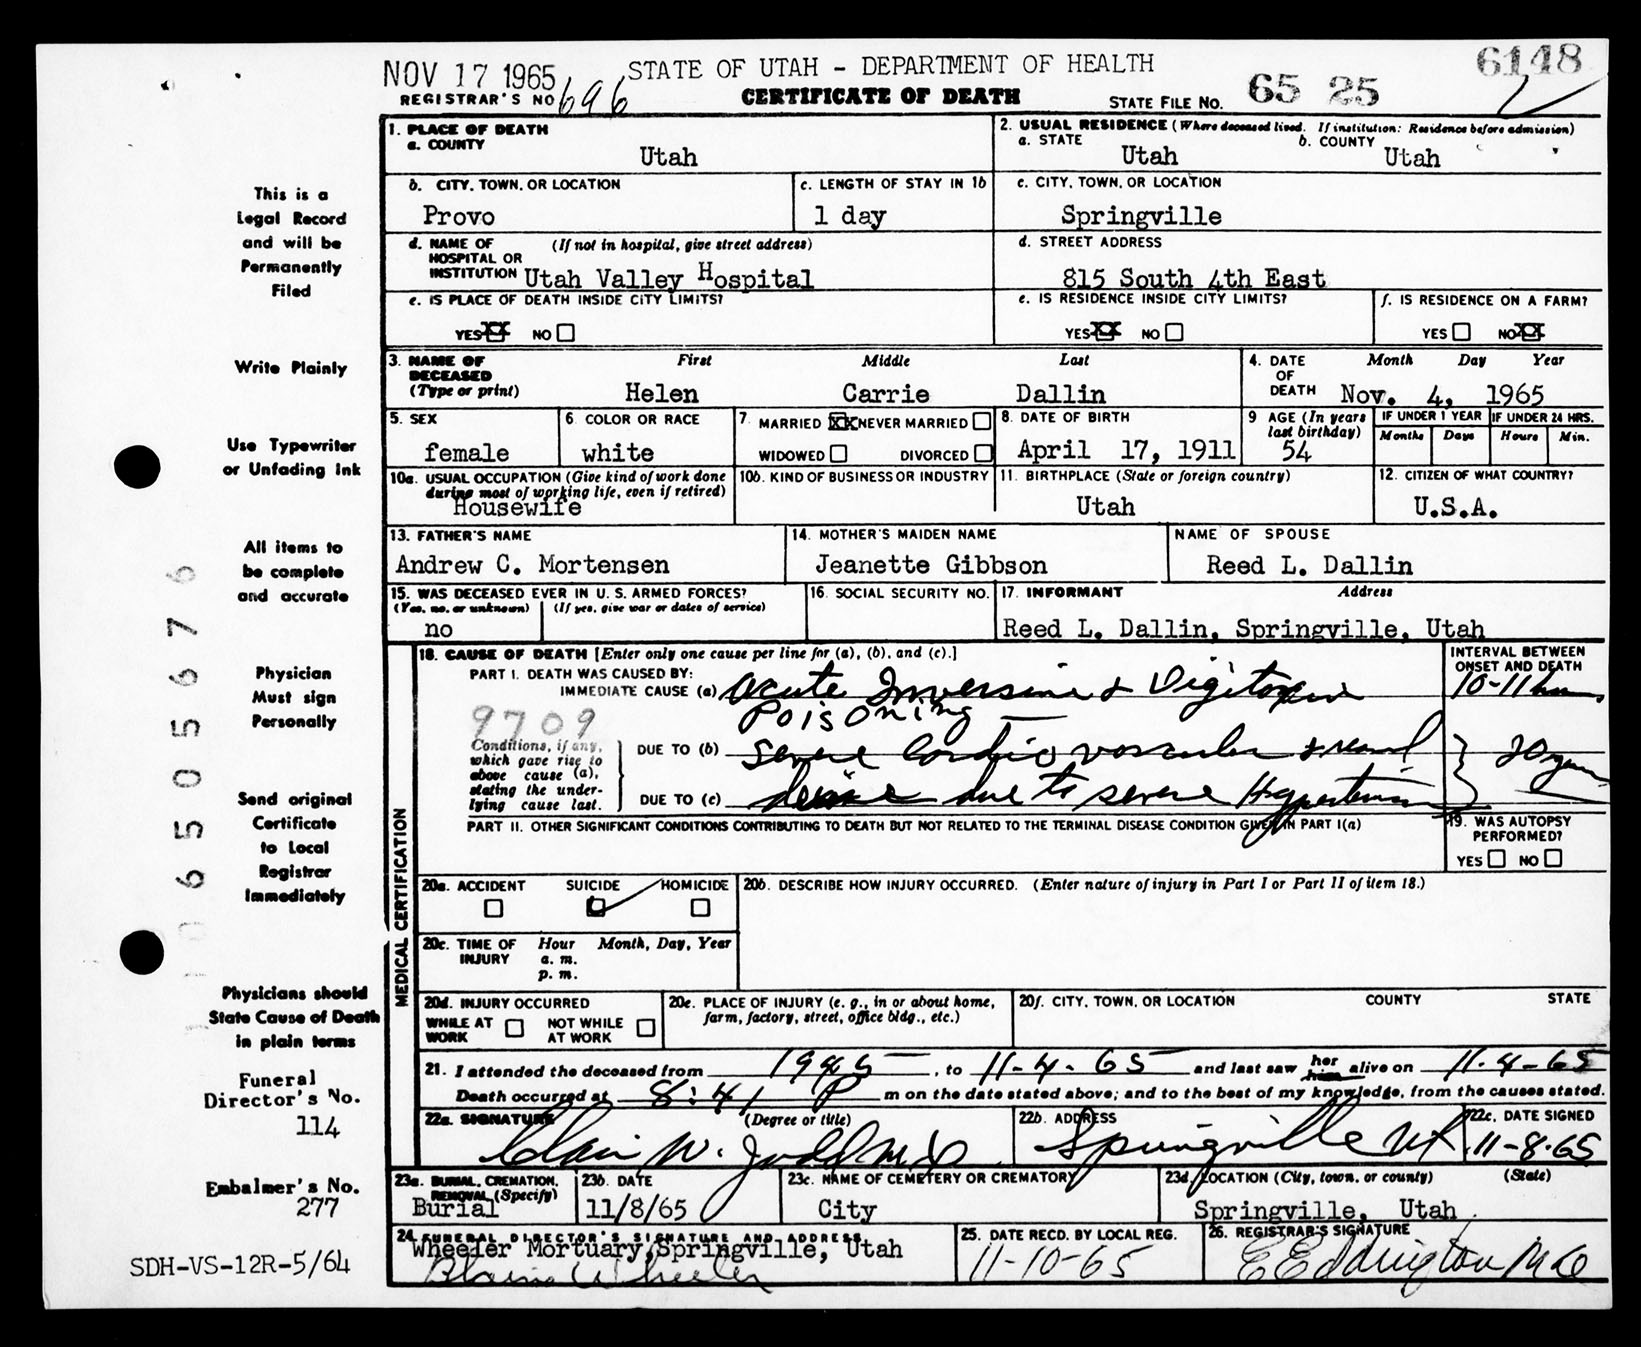 NOV 17 1965
STATE OF UTAH - DEPARTMENT OF HEALTH
6148
REGISTRAR'S NO 696
CERTIFICATE OF DEATH
STATE FILE NO. 65 25
1. PLACE OF DEATH
a. COUNTY
Utah
2. USUAL RESIDENCE (Where deceased lived. If institution: Residence before admission)
a. STATE
Utah
b. COUNTY
Utah
b. CITY, TOWN, OR LOCATION
Provo
c. LENGTH OF STAY IN 1b
1 day
c. CITY, TOWN, OR LOCATION
Springville
d. NAME OF HOSPITAL OR INSTITUTION
(If not in hospital, give street address)
Utah Valley Hospital
d. STREET ADDRESS
815 South 4th East
e. IS PLACE OF DEATH INSIDE CITY LIMITS?
YES XX NO
e. IS RESIDENCE INSIDE CITY LIMITS?
YES XX NO
f. IS RESIDENCE ON A FARM?
YES NO XX
3. NAME OF DECEASED (Type or print)
First Middle Last
Helen Carrie Dallin
4. DATE OF DEATH
Month Day Year
Nov. 4, 1965
5. SEX
female
6. COLOR OR RACE
white
7. MARRIED XX NEVER MARRIED
WIDOWED DIVORCED
8. DATE OF BIRTH
April 17, 1911
9 AGE (In years last birthday)
54
IF UNDER 1 YEAR
Months Days
IF UNDER 24 HRS.
Hours Min.
10a. USUAL OCCUPATION (Give kind of work done
during most of working life, even if retired)
Housewife
10b. KIND OF BUSINESS OR INDUSTRY
11. BIRTHPLACE (State or foreign country)
Utah
12. CITIZEN OF WHAT COUNTRY?
U.S.A.
13. FATHER'S NAME
Andrew C. Mortensen
14. MOTHER'S MAIDEN NAME
Jeanette Gibbson
NAME OF SPOUSE
Reed L. Dallin
15. WAS DECEASED EVER IN U. S. ARMED FORCES?
(Yes, no, or unknown) (If yes, give war or dates of service)
no
16. SOCIAL SECURITY NO.
17. INFORMANT Address
Reed L. Dallin, Springville, Utah
MEDICAL CERTIFICATION
18. CAUSE OF DEATH [Enter only one cause per line for (a), (b), and (c).]
INTERVAL BETWEEN
ONSET AND DEATH
PART I. DEATH WAS CAUSED BY:
IMMEDIATE CAUSE (a) Acute Inversine & Digitoxin
Poisoning
10-11 hrs
9709
Conditions, if any,
which gave rise to
above cause (a),
stating the under-
lying cause last.
DUE TO (b) Severe Cardio vascular & renal
DUE TO (c) disease due to severe Hypertension
20 years
PART II. OTHER SIGNIFICANT CONDITIONS CONTRIBUTING TO DEATH BUT NOT RELATED TO THE TERMINAL DISEASE CONDITION GIVEN IN PART I(a)
19. WAS AUTOPSY
PERFORMED?
YES NO
20a. ACCIDENT SUICIDE HOMICIDE
20b. DESCRIBE HOW INJURY OCCURRED. (Enter nature of injury in Part I or Part II of item 18.)
20c. TIME OF INJURY
Hour Month, Day, Year
a. m.
p. m.
20d. INJURY OCCURRED
WHILE AT WORK
NOT WHILE AT WORK
20e. PLACE OF INJURY (e. g., in or about home,
farm, factory, street, office bldg., etc.)
20f. CITY, TOWN, OR LOCATION COUNTY STATE
21. I attended the deceased from 1945, to 11-4-65 and last saw her him alive on 11-4-65
Death occurred at 8:41 P m on the date stated above; and to the best of my knowledge, from the causes stated.
22a. SIGNATURE (Degree or title)
Clair W. Judd MD
22b. ADDRESS
Springville Ut
22c. DATE SIGNED
11-8-65
23a. BURIAL, CREMATION,
REMOVAL (Specify)
Burial
23b. DATE
11/8/65
23c. NAME OF CEMETERY OR CREMATORY
City
23d. LOCATION (City, town, or county) (State)
Springville, Utah
24. FUNERAL DIRECTOR'S SIGNATURE AND ADDRESS
Wheeler Mortuary, Springville, Utah
Blaine Wheeler
25. DATE RECD. BY LOCAL REG.
11-10-65
26. REGISTRAR'S SIGNATURE
C E Eddington MD
This is a
Legal Record
and will be
Permanently
Filed
Write Plainly
Use Typewriter
or Unfading Ink
All items to
be complete
and accurate
Physician
Must sign
Personally
Send original
Certificate
to Local
Registrar
Immediately
Physicians should
State Cause of Death
in plain terms
Funeral
Director's No.
114
Embalmer's No.
277
SDH-VS-12R-5/64